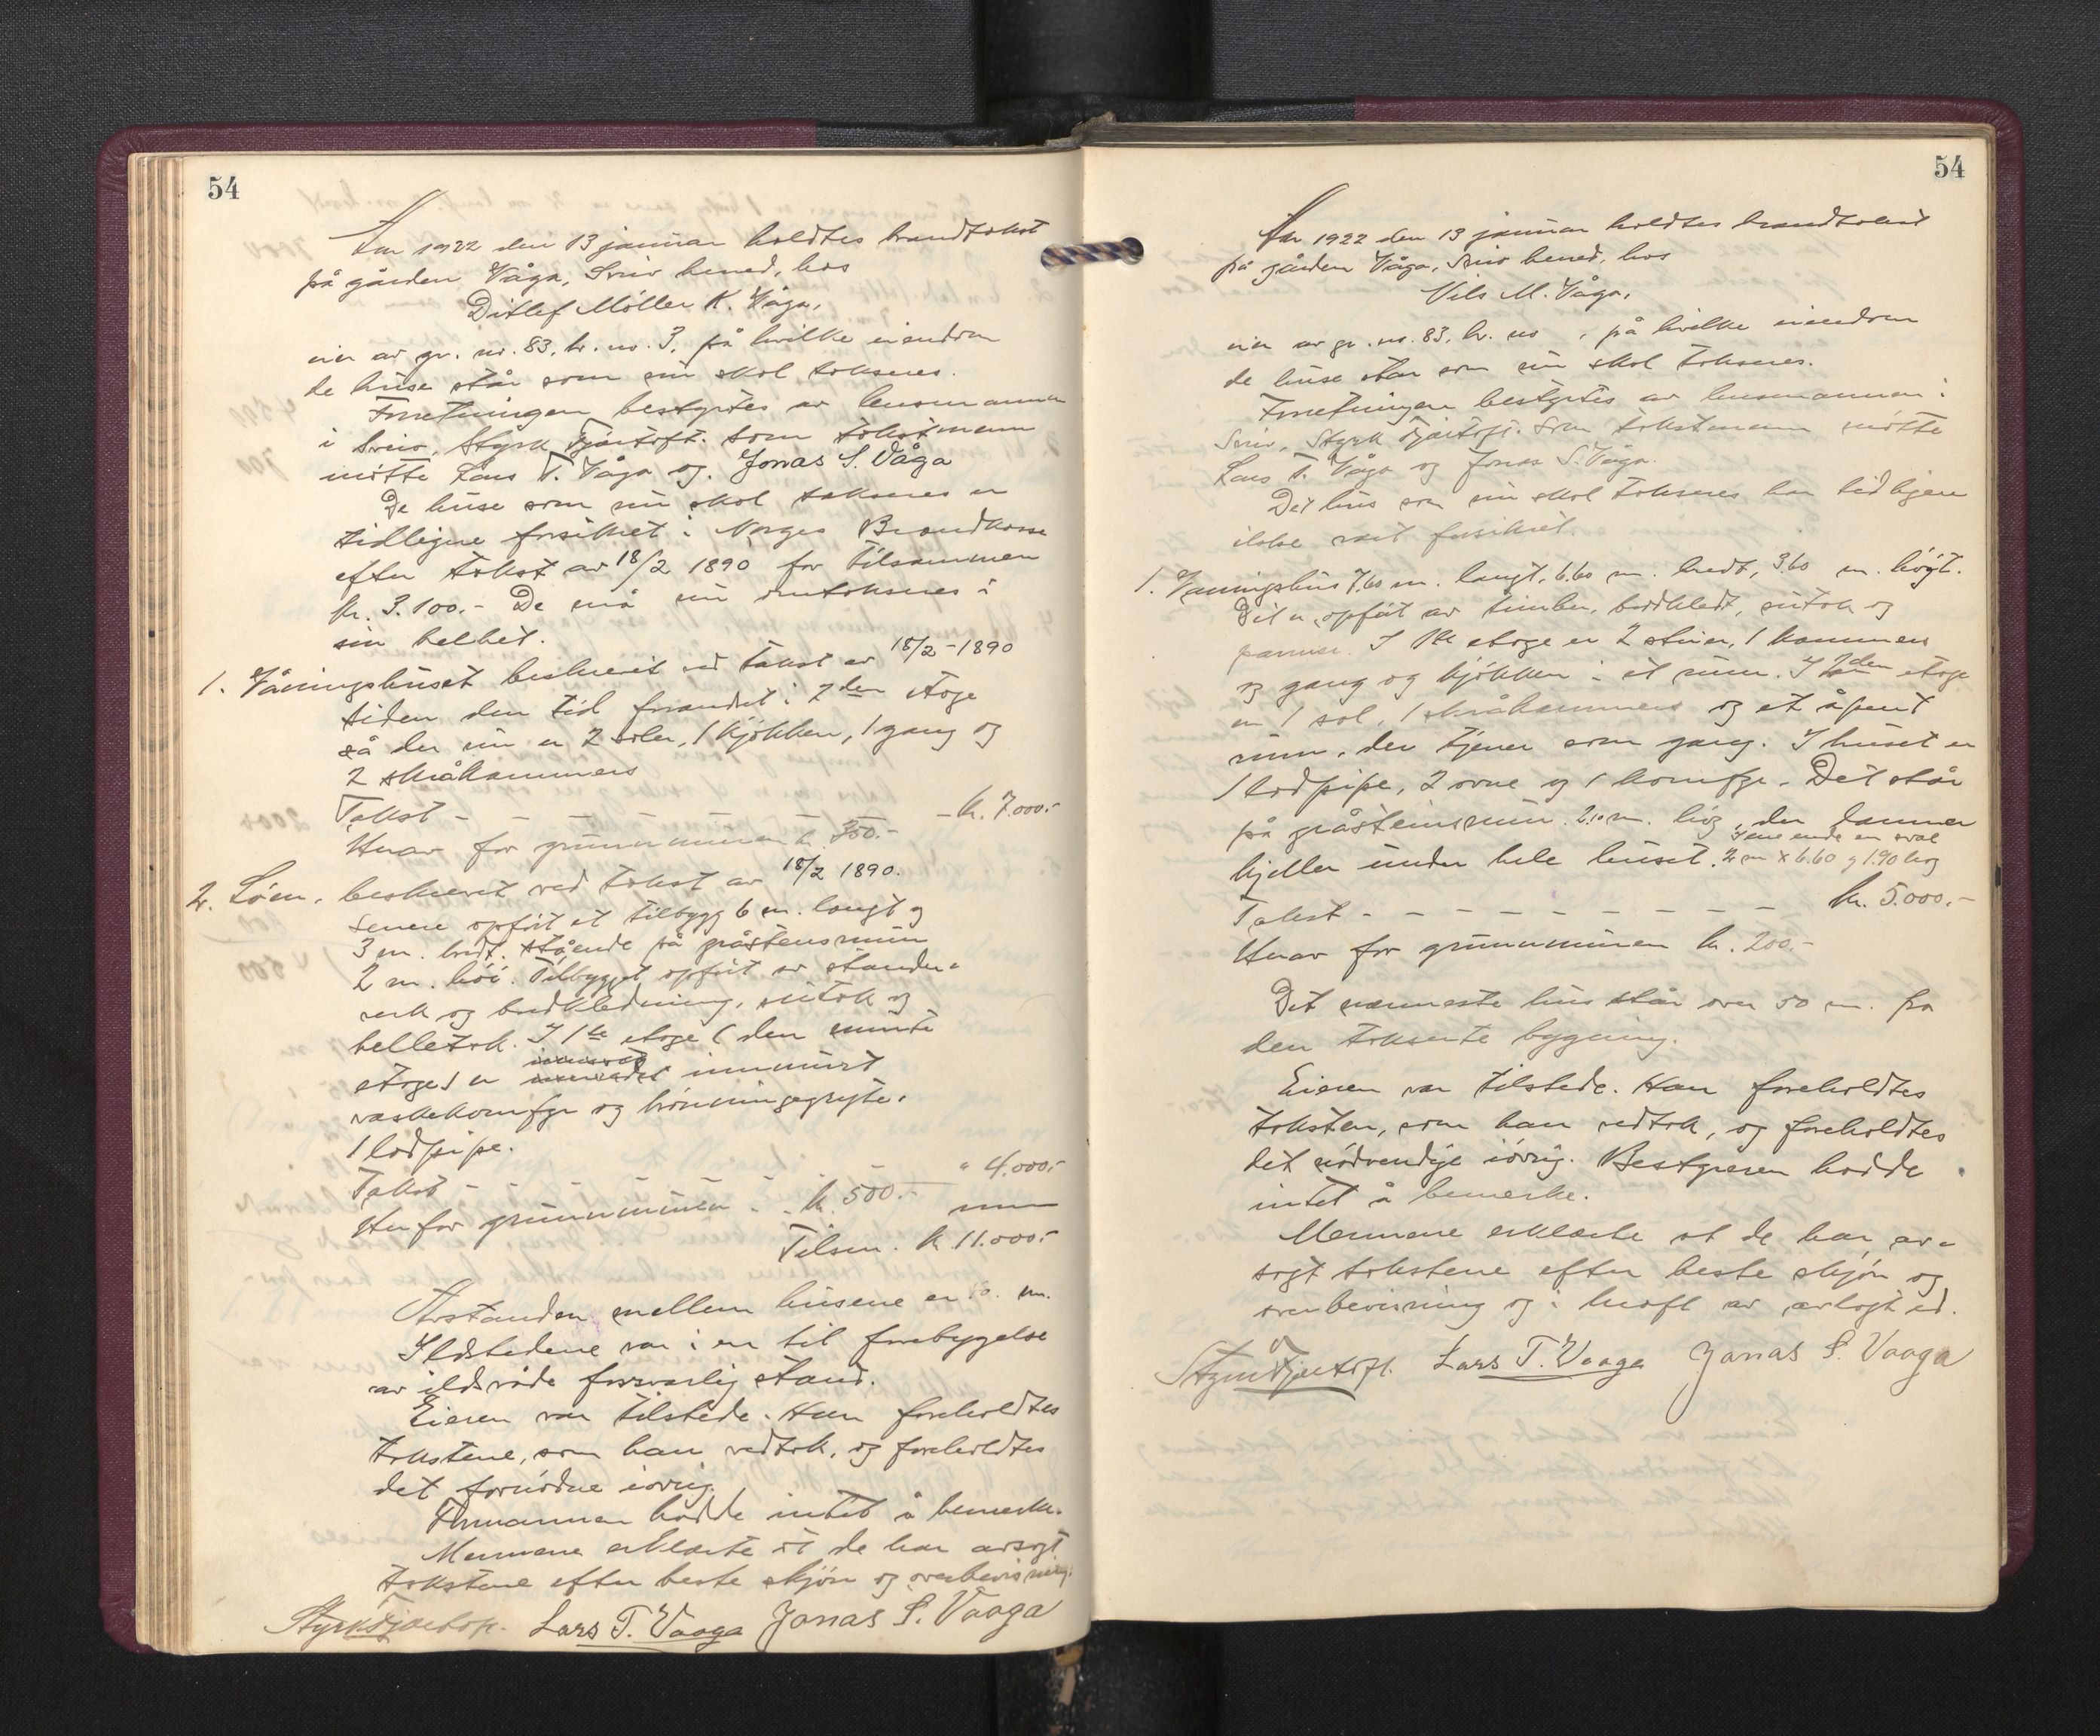 54
År 1922 den 13 januar holdtes brandtakst
på gården Våga, Sveio herred, hos
Ditlef Möller K. Våga,
eier av gr. nr. 83, br. no. 3, på hvilke eiendom
de huse står som nu skal takseres.
Forretningen bestyrtes av lensmannen
i Sveio, Styrk Tjartoft. Som takstmenn
møtte Lars T. Våga og Jonas S. Våga
De huse som nu skal takseres er
tidligere forsikret i Norges Brandkasse
efter takst av 18/2 1890 for tilsammen
kr. 3.100.- De må nu omtakseres i
sin helhet.
1. Våningshuset beskrevet ved takst av 18/2-1890
siden den tid forandret i 2den etage
så der nu er 2 saler, 1 kjøkken, 1 gang og
2 skråkammers
Takst - - - - - - kr. 7.000.-
Herav for grunnmuren kr. 350.-
2. Løen, beskrevet ved takst av 18/2 1890.
Senere opført et tilbygg 6 m. langt og
3 m. bredt, stående på gråstensmur
2 m. høi. Tilbygget opført av stender-
verk og bordkledning, sutak og
helletak. I 1ste etage (den murte
etage) er innmurt
vaskekomfyr og brønningsgryte.
1 lodpipe.
Takst - - - - - - " 4.000.-
Her for grunnmuren - kr. 500.-
Tilsm. kr 11.000.-
Avstanden mellem husene er m.
Ildstedene var i en til forebygelse
av ildsvåde forsvarlig stand.
Eieren var tilstede. Han foreholdtes
takstene, som han vedtok, og foreholdtes
det fornødne iøvrig.
Formannen hadde intet å bemerke.
Mennene erklærte at de har avsagt
takstene efter beste skjøn og overbevisning.
Styrk Tjartoft. Lars T. Vaaga Jonas S. Vaaga
54
År 1922 den 13 januar holdtes brandtakst
på gården Våga, Sveio herred, hos
Nils M. Våga,
eier av gr. no. 83, br. no , på hvilke eiendom
de huse står som nu skal takseres.
Forretningen bestyrtes av lensmannen i
Sveio, Styrk Tjartoft. Som takstmenn møtte
Lars T. Våga og Jonas S. Våga.
Det hus som nu skal takseres har tidligere
ikke vært forsikret.
1. Våningshus 7.60 m. langt, 6.60 m. bredt, 3.60 m. høgt.
Det er opført av timber, bordkledt, sutak og
pannér. I 1ste etage er 2 stuer, 1 kammers
og gang og kjøkken i et rum. I 2den etage
er 1 sal, 1 skråkammers og et åpent
rum, der tjener som gang. I huset er
1 lodpipe, 2 ovne og 1 komfyr. Det står
på gråsteinsmur 2.10 m. høg, der danner
kjeller under hele huset. I ene ende en sval
2 m x 6.60 og 1.90 høg
Takst - - - - - - - - - kr. 5.000.-
Herav for grunnmuren kr. 200.-
Det nærmeste hus står over 50 m. fra
den takserte bygning.
Eieren var tilstede. Han foreholdtes
taksten, som han vedtok, og foreholdtes
det nødvendige iøvrig. Bestyreren hadde
intet å bemerke.
Mennene erklærte at de har av-
sagt takstene efter beste skjøn og
overbevisning og i kraft av avlagt ed.
Styrk Tjartoft. Lars T. Vaage Jonas S. Vaaga